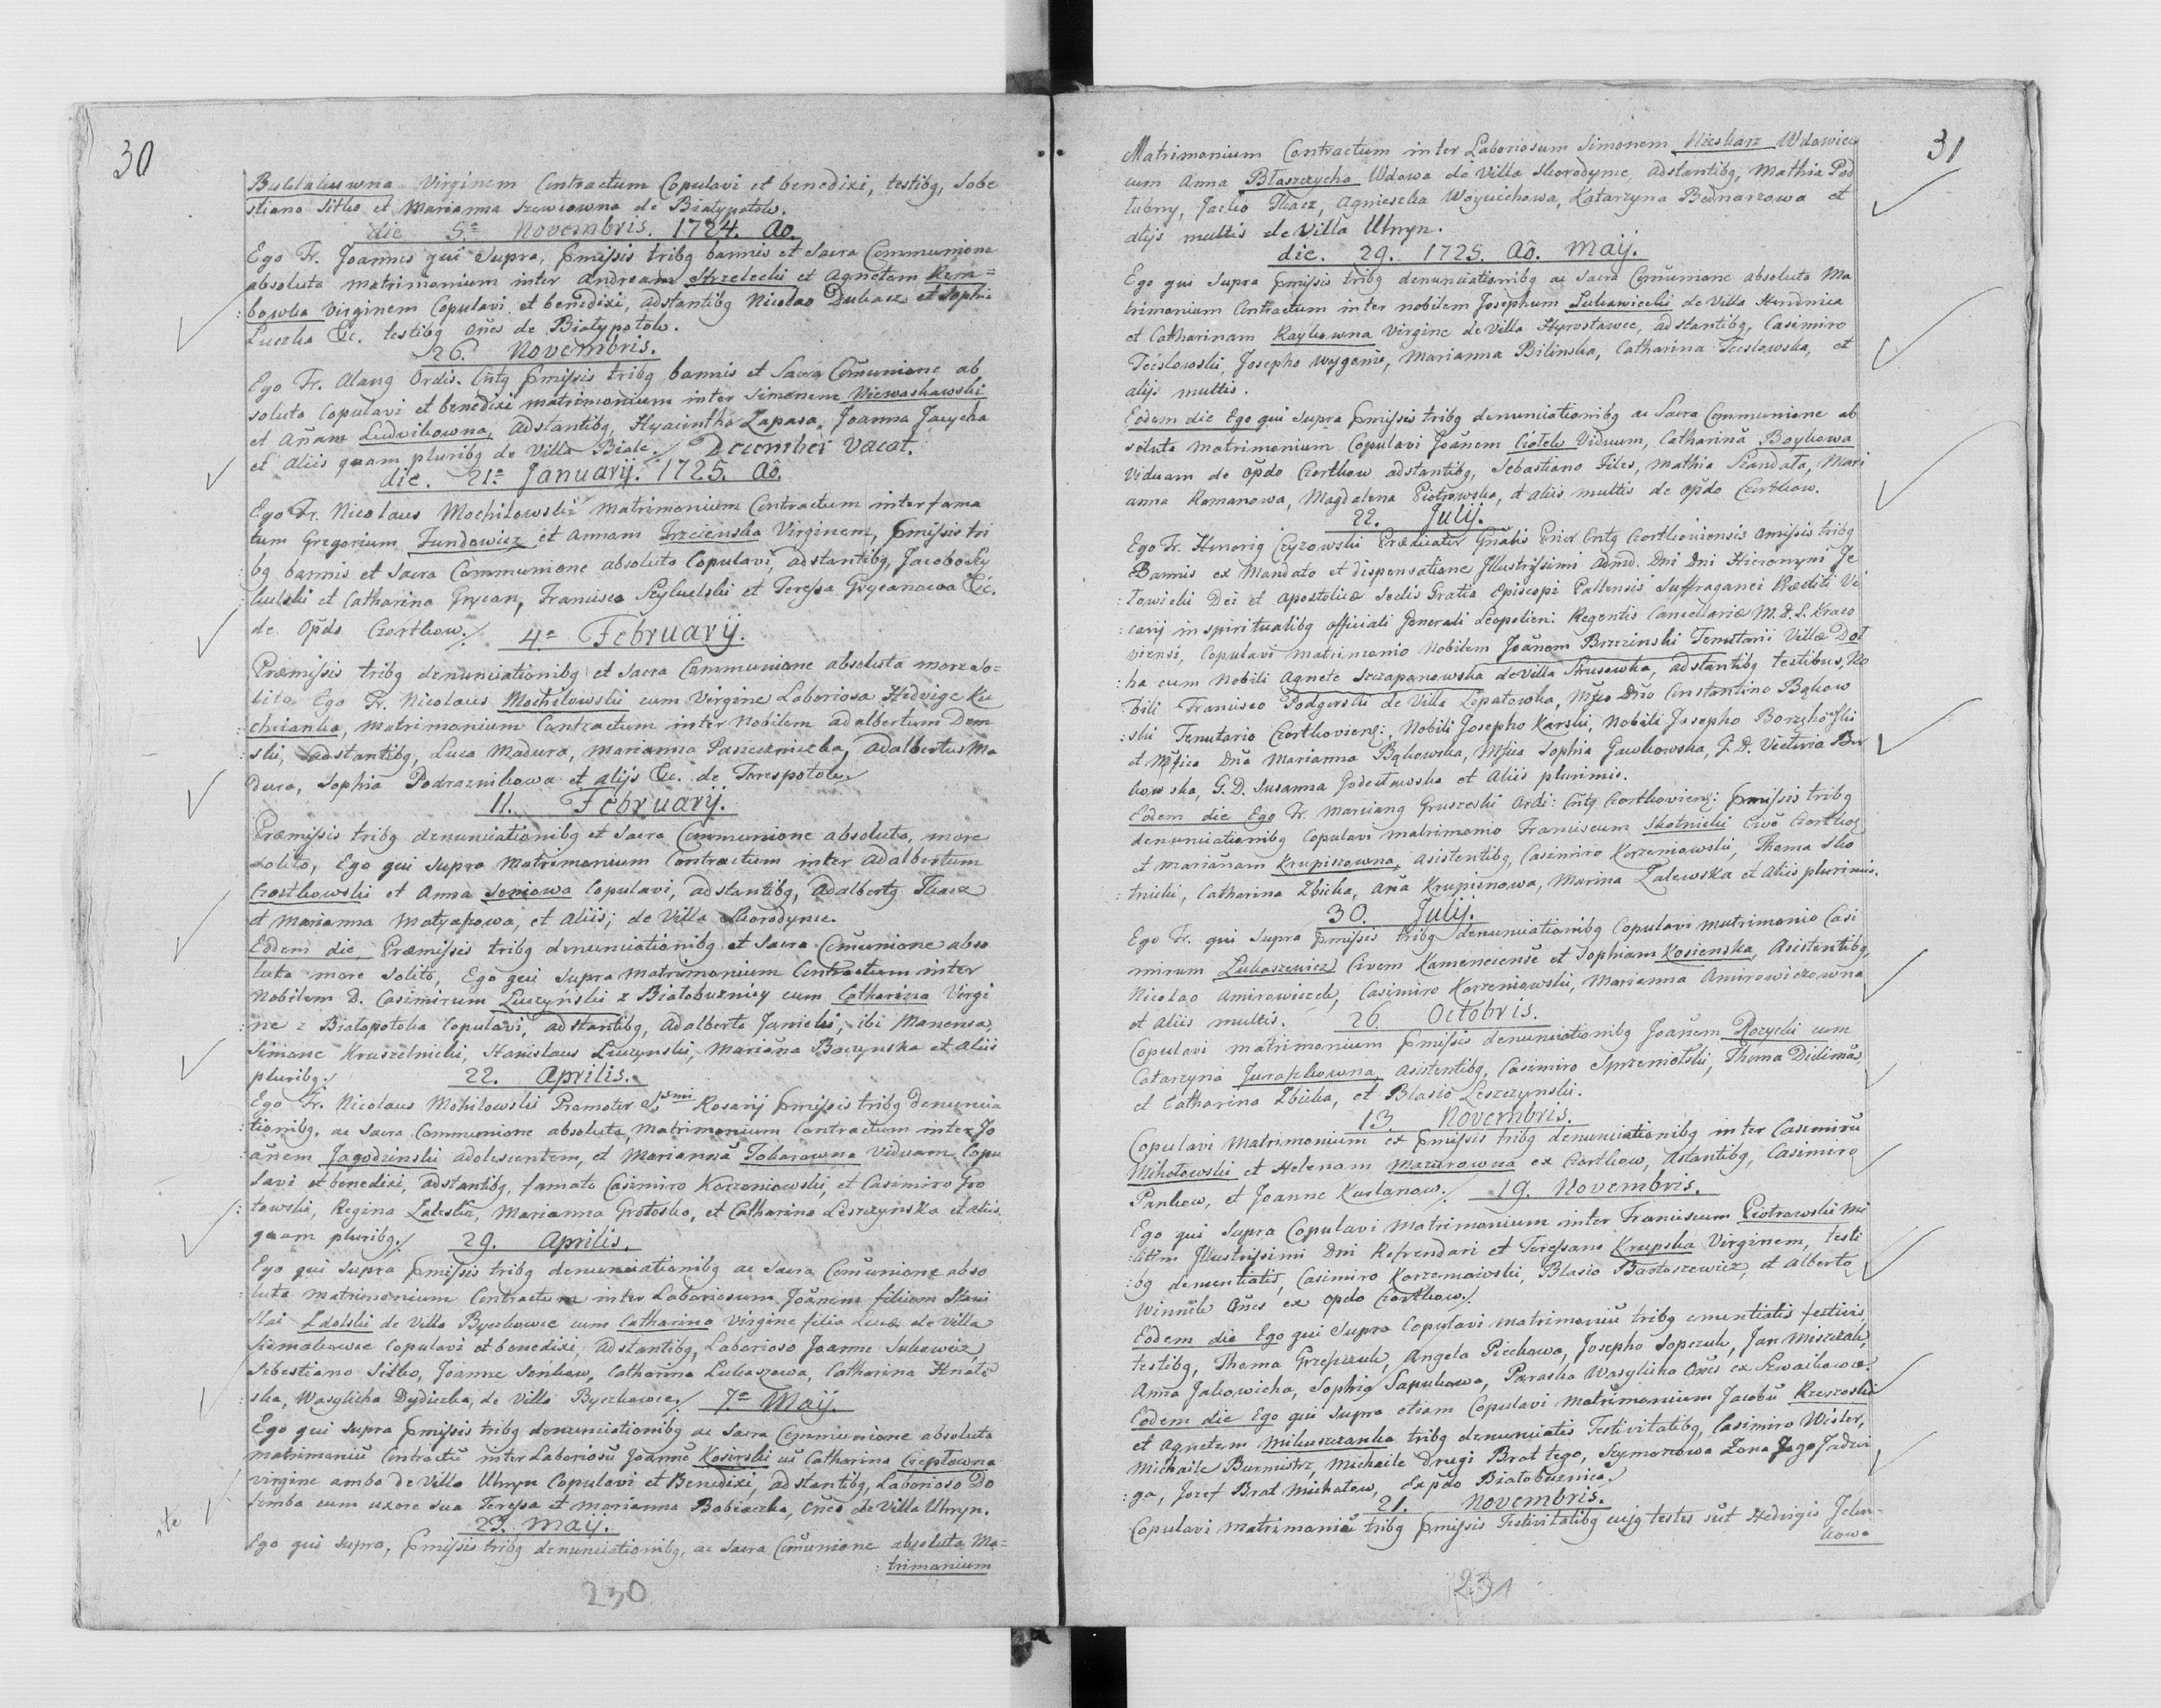 30
Virginem Contractum Copulavi et benedixi, testibg, Seba
stiano Sitko et Marianna Szewcowna de Białypotok.
die 5ª Novembris. 1724. Ao.
Ego Fr. Joannes qui Supra, pmissis tribg bannis et Sacra Communione
absoluta matrimonium inter Andream Strzelecki et Agnetem Rem=
:bowka Virginem Copulavi et benedixi, adstantibg Nicolao Dukacz et Sophia
Luczka &c. testibg oñes de Białypotok.
26. Novembris.
Ego Fr. Alang Ordis. Cntg pmissis tribg bannis et Sacra Comunione ab
soluta Copulavi et benedixi matrimonium inter Simonem
et Añam Ludvikowna, adstantibg, Hyacintho Zapasa, Joanna Jacycha
et Aliis quam pluribg de Villa Biale./ December Vacat.
die. 21ª Januarij. 1725. Aô.
Ego Fr. Nicolaus Mochilowski matrimonium Contractum inter fama
tum Gregorium Fundowicz et Annam Trzcienska Virginem, pmissis tri
:bg bannis et Sacra Communione absoluta Copulavi, adstantibg, Jacobo
et Catharina Grycan, Francisco et Teressa Grycanowa &c.
de Opdo Czortkow./ 4ª Februarij.
Præmissis tribg denunciationibg et Sacra Communione absoluta more so=
lito Ego Fr. Nicolaus Mochilowski cum Virgine Laboriosa Hedvige Ku
:chcianka, matrimonium Contractum inter Nobilem adalbertum Dem
:ski, adstantibg, Luca Madura, Marianna Paszeczniczka, Adalbertus Ma
dura, Sophia Podraznikowa et alijs &c. de Terespotok./
11. Februarij.
Præmissis tribg denunciationibg et Sacra Communione absoluta, more
Solito, Ego qui Supra Matrimonium Contractum inter Adalbertum
Czortkowski et Anna Seniowa Copulavi, adstantibg, Adalbertg Tkacz
et Marianna Matyaszowa, et Aliis; de Villa Skorodynce.
Eodem die, Præmissis tribg denunciationibg et Sacra Comunione abso
luta more Solito, Ego qui Supra Matrimonium Contractum inter
Nobilem D. Casimirum Luczyński z Białobuznicy cum Catharina Virgi
:ne z Białopotoka Copulavi, adstantibg, Adalberto Janicki, ibi Manens,
Simone Kruszelnicki, Stanislaus Luczynski, Mariãna Baczynska et Aliis
pluribg./ 22. Aprilis.
Ego Fr. Nicolaus Mohilowski Promotor Ssmi Rosarij pmissis tribg Denuncia
:tionibg, ac Sacra Communione absoluta, Matrimonium Contractum inter Jo
:añem Jagodzinski adolescentem, et Marianna Tokarowna Viduam Copu
lavi et benedixi, adstantibg, famato Casimiro Korzeniowski, et Casimiro Gro
:towski, Regina Zaleska, Marianna Grotoska, et Catharina Leszczyńska et aliis
quam pluribg./ 29. Aprilis.
Ego qui Supra pmissis tribg denunciationibg ac Sacra Comunione abso
:luta Matrimonium Contractum inter Laboriosum Joãnem filium Stani
:slai de Villa Byczkowce cum Catharina Virgine filia Lucæ de Villa
Siemakowce Copulavi et benedixi, Adstantibg, Laborioso Joanne
Sebestiano Sitko, Joanne Senkow, Catharina Lukaszowa, Catharina Hnate
:ska, Wasylicha Dydiczka, de Villa Byczkowce./ 7ª Maij.
Ego qui Supra pmissis tribg denunciationibg ac Sacra Communione absoluta
matrimoniũ Contractũ inter Laboriosũ Joannẽ Kosirski Catharina Czeptowna
virgine ambo de Villa Uhryn Copulavi et Benedixi, adstantibg, Laborioso Do
:semba cum uxore sua Teressa et Marianna Babiaczka, oñes de Villa Uhryn.
23. Maij.
Ego qui Supra, pmissis tribg denunciationibg, ac Sacra Comunione absoluta Ma=
:trimonium
230
31
Matrimonium Contractum inter Laboriosum Simonem Wdowiec
cum Anna Błaszczycha Wdowa de Villa Skorodynce, adstantibg, Mathia Pod
lubny, Jacko Tkacz, Agnieszka Woyciechowa, Katarzyna Bednarzowa et
alijs multis de Villa Uhryn.
die. 29. 1725. Aô. Maij.
Ego qui Supra pmissis tribg denunciationibg ac Sacra Comunione absoluta Ma
trimonium Contractum inter nobilem Josephum Lukawiecki de Villa
et Catharinam Raykowna Virgine de Villa, adstantibg, Casimiro
Josepho, Marianna Bilinska, Catharina et
alijs multis.
Eodem die Ego qui Supra pmissis tribg denunciationibg ac Sacra Communione ab
soluta Matrimonium Copulavi Joãnem Ciołek Viduum, Catharinã Boykowa
Viduam de opdo Czortkow adstantibg, Sebastiano Files, Mathia Szandała, Mari
anna Romanowa, Magdalena Piotrowska, et aliis multis de opdo Czortkow.
22. Julij.
Ego Fr. Honorig Czyzowski Prædicator Gnalis Prior Cntg Czortkoviensis omissis tribg
Bannis ex Mandato et dispensatione Illustrissimi Admd. Dni Dni Hieronymi Je
:łowicki Dei et Apostolicæ Sedis Gratia Episcopi Paltensis Suffraganei Præditi Vi
:carij in Spiritualibg officiali Generali Leopolien: Regentis Cancellariæ M.D.L. Kraco
viensi, Copulavi Matrimonio Nobilem Joãnem Brzezinski Tenutarii Villæ Doł
:ha cum Nobili Agnete Szczapanowska de Villa Strusowka, adstantibg testibus, No
:bili Francisco Podgurski de Villa Łopatowka, Mfico Dño Constantino Bąkow
:ski Tenutario Czortkovieng:, Nobili Josepho Karski, Nobili Josepho
et Mfica Dña Marianna Bąkowska, Mfica Sophia Gawkowska, G.D. Victoria
kowska, G.D. Susanna et Aliis plurimis.
Eodem die Ego Fr. Marciang Gruszeski Ordi: Cntg Czortkovieng: pmissis tribg
denunciationibg Copulavi matrimonio Franciscum Skotnicki
et Mariãnam Krupiszowna, asistentibg, Casimiro Korzeniowski, Thoma Sko
:tnicki, Catharina Zbicka, Aña Marina Zalewska et Aliis plurimis.
30. Julij.
Ego Fr. qui Supra pmissis tribg denunciationibg Copulavi matrimonio Casi
mirum Łukaszewicz Civem Kamenciensẽ et Sophiam Kosienska, Asistentibg,
Nicolao Amirowiczch, Casimiro Korzeniowski, Marianna Amirowiczowna
et Aliis multis. 26. Octobris.
Copulavi matrimonium pmissis denunciationibg Joãnem Rozycki cum
Catarzyna Juraszkowna, asistentibg, Casimiro Thoma
et Catharina Zbicka, et Blasio Leszczynski.
13. Novembris.
Copulavi Matrimonium ex pmissis tribg denunciationibg inter Casimirũ
Mikołowski et Helenam Mazurowna ex Czortkow, Astantibg, Casimiro
Pankow, et Joanne Kurlanow./ 19. Novembris.
Ego qui Supra Copulavi Matrimonium inter Franciscum Piotrowski Mi
:litẽm Illustrissimi Dni Refrendari et Teressam Krupska Virginem, testi
:bg denuntiatis, Casimiro Korzeniowski, Blasio Bartoszewicz, et Alberto
Winnik oñes ex opdo Czortkow./
Eodem die Ego qui Supra Copulavi Matrimoniũ tribg enuntiatis festivis,
testibg, Thoma Angela Piechowa, Josepho Sopczuk, Jan
Anna Jakowicha, Sophia Sapukowa, Paraska Wasylicha oñes ex
Eodem die Ego qui Supra etiam Copulavi Matrimonium Jacobũ Rzeszoski
et Agnetem Mikuszczanka tribg denunciatis Festivitatibg, Casimiro Wisler,
Michaile Burmistrz, Michaile Drugi Brat tego, Szymonowa Zona Jego Jadwi
:ga, Jozef Brat Michałow, Expdo Białobuznica./
21. Novembris.
Copulavi Matrimoniũ tribg pmissis Festivitatibg cujg testes sũt Hedvigis
kowa
231